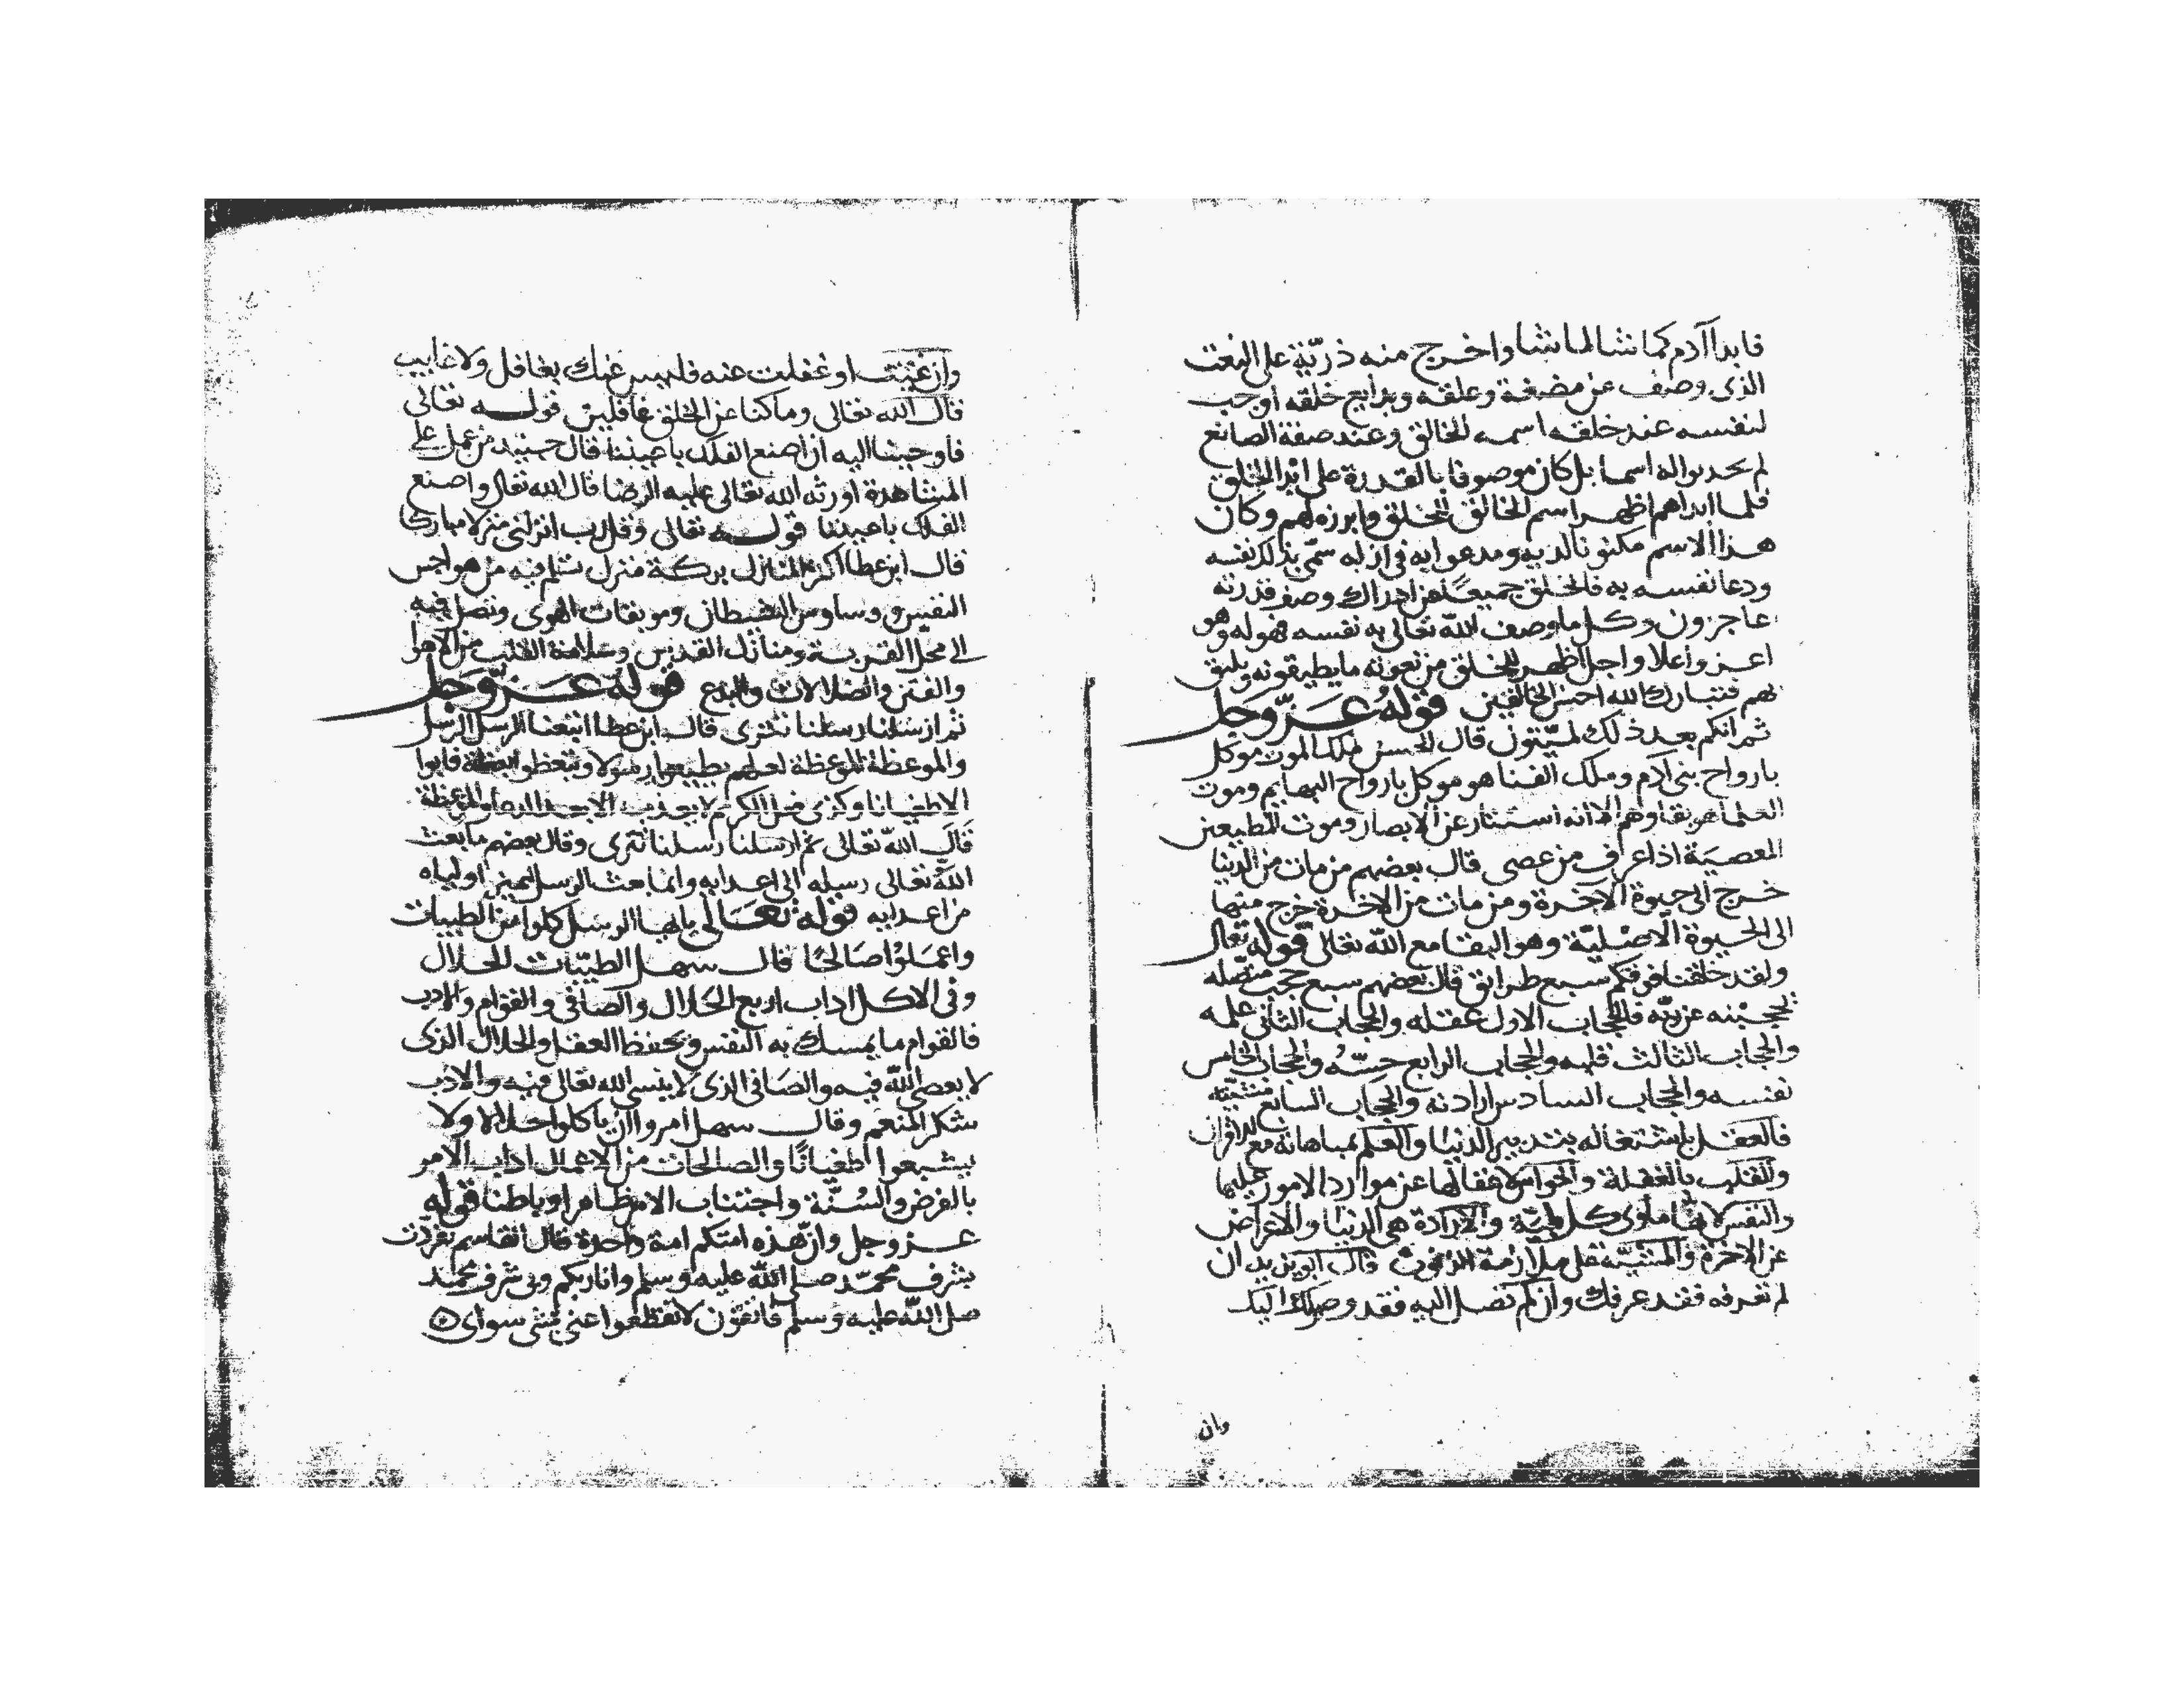 فابدا آدم كما شا لما شا واخرج منه ذريّته على النعت
الذى وصف من مضغة وعلقه وبدايع خلقه اوجب
لنفسه عند خلقه اسم الخالق وعند صفة الصانع
لم يحدثوا له اسما بل كان موصوفا بالقدرة على ابدا الخلق
فلما ابداهم اظهر اسم الخالق للخلق وابرزه لهم وكان
هذا الاسم مكنونا لديه ومدعوا به فى ازله سمّى بذلك نفسه
ودعا نفسه به فالخلق جميعًا عن ادراك وصف قدرته
عاجزون وكل ما وصف الله تعالى به نفسه فهو له وهو
اعز واعلا واجل اظهر للخلق من نعوته ما يطيقونه ويليق
بهم فتبارك الله احسن الخالقين قولهُ عزّ وجل
ثم انكم بعد ذلك لميّتون قال الحسن ملك الموت موكل
بارواح بنى آدم وملك الفنا هو موكل بارواح البهايم وموت
العلما هو بقاوهم الا انه استتار عن الابصار وموت المطيعين
المعصيَة اذا عرف من عصى قال بعضهم من مات من الدنيا
خرج الى حيوة الآخرة ومن مات من الاخرة خرج منها
الى الحيوة الاصْليّة وهو البقا مع الله تعالى قوله تعالى
ولقد خلقنا فوقكم سبع طرائق قال بعضهم سبع حجب متصله
تحجبْنه عن ربّه فالحجاب الاول عقله والحجاب الثانى علمه
والحجاب الثالث قلبه والحجاب الرابع حسّهُ والحجاب الخامس
نفسه والحجاب السادس ارادته والحجاب السابع مشيّته
فالعقل باشتغاله بتدبير الدنيا والعلم بمباهاته مع الاقران
والقلب بالغفلة والحواس لاغفالها عن موارد الامور عليها
والنفس لانها ماوى كل بليّة والارادة هى الدنيا والاعراض
عن الاخرة والمشيّة على ملازمة الذنوب قال ابويزيد ان
لم تعرفه فقد عرفك وان لم تصل اليه فقد وصلك اليك
وان
وان غبت او غفلت عنه فليس عنك بغافل ولا غايب
قال الله تعالى وما كنا عن الخلق غافلين قوله تعالى
فاوحينا اليه ان اصنع الفلك باعيننا قال جنيد من عمل على
المشاهدة اورثه الله تعالى عليه الرضا قال الله تعالى واصنع
الفلك باعيننا قوله تعالى وقل رب انزلنى منزلا مباركا
قال ابن عطا اكثر المنازل بركة منزل تسلم فيه من هواجس
النفس ووساوس الشيطان وموبقات الهوى وتصل فيه
الى محل القربة ومنازل القدس وسلامة القلب من الاهوا
والفتن والضلالات والبدع قوله عزّ وجل
ثم ارسلنا رسلنا تترى قال ابن عطا اتبعنا الرسل الرسل
والموعظة الموعظة لعلهم يطيعوا رسولا ويتعظوا بعظة فابوا
الا طغيانا
قَالَ الله تعالى ثم ارسلنا رسلنا تترى وقال بعضهم ما بعث
الله تعالى رسله الى اعدايه وانما بعث الرسل ليميز اولياه
من اعدايه قوله تعَالى يايها الرسل كلوا من الطيبات
واعملوْا صَالحًا قال سهل الطيّبات للحلال
وفى الاكل اداب اربع الحلال والصافى والقوام والادب
فالقوام ما يمسك به النفس ويحفظ العقل والحلال الذى
لا يعصى الله فيه والصَافى الذى لا ينسى الله تعالى فيه والادب
شكر المنعم وقال سهل أمروا ان ياكلوا حلالا ولا
يشبعوا طغيانًا والصالحات من الاعمال اداب الامر
بالفرض والسُنّة واجتناب الامر ظاهرا وباطنا قوله
عز وجل وانّ هذه امتكم امة واحدة قال القاسم تفرّدت
بشرف محمّد صلى الله عليه وسلم وانا ربكم وبى شرف محمّد
صلى الله عليه وسلم فاتقون لا تقطعوا عنى بشى سواى